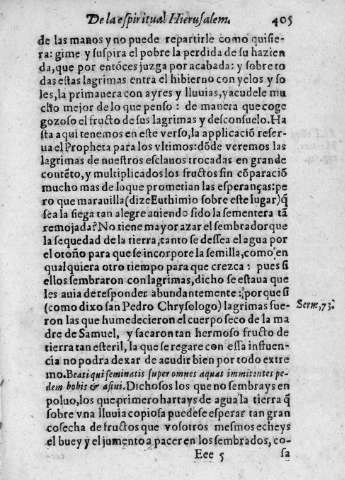 De la espiritual Hierusalem. 405
de las manos y no puede repartirle como quisie-
ra: gime y suspira el pobre la perdida de su hazien
da, que por entóces juzga por acabada: y sobre to
das estas lagrimas entra el hibierno con yelos y so
les, la primauera con ayres y lluuias, y acudele mu
cho mejor de lo que penso: de manera que coge
gozoso el fructo de sus lagrimas y desconsuelo. Ha
sta aqui tenemos en este verso, la applicació reser-
ua el Propheta para los vltimos: dóde veremos las
lagrimas de nuestros esclauos trocadas en grande
contéto, y multiplicados los fructos sin cóparació
mucho mas de lo que prometian las esperanças: pe
ro que marauilla (dize Euthimio sobre este lugar) q̃
sea la siega tan alegre auiendo sido la sementera tã
remojada? No tiene mayor azar el sembrador que
la sequedad de la tierra, tanto se dessea el agua por
el otoño para que se incorpore la semilla, como en
qualquiera otro tiempo para que crezca: pues si
ellos sembraron con lagrimas, dicho se estaua que
les auia de responder abundantemente; porque si
(como dixo san Pedro Chrysologo) lagrimas sue- Serm, 73;
ron las que humedecieron el cuerpo seco de la ma
dre de Samuel, y sacaron tan hermoso fructo de
tierra tan esteril, la que se regare con essa instuen-
cia no podra dexar de acudir bien por todo extre
mo. Beati qui seminatis super omnes aquas immitentes pe-
dem bobis & asini. Dichosos los que no sembrays en
poluo, los que primero hartays de agua la tierra q̃
sobre vna lluuia copiosa puedese esperar tan gran
cosecha de fructos que vosotros mesmos echeys
el buey y el jumento a pacer en los sembrados, co-
Eee 5 sa